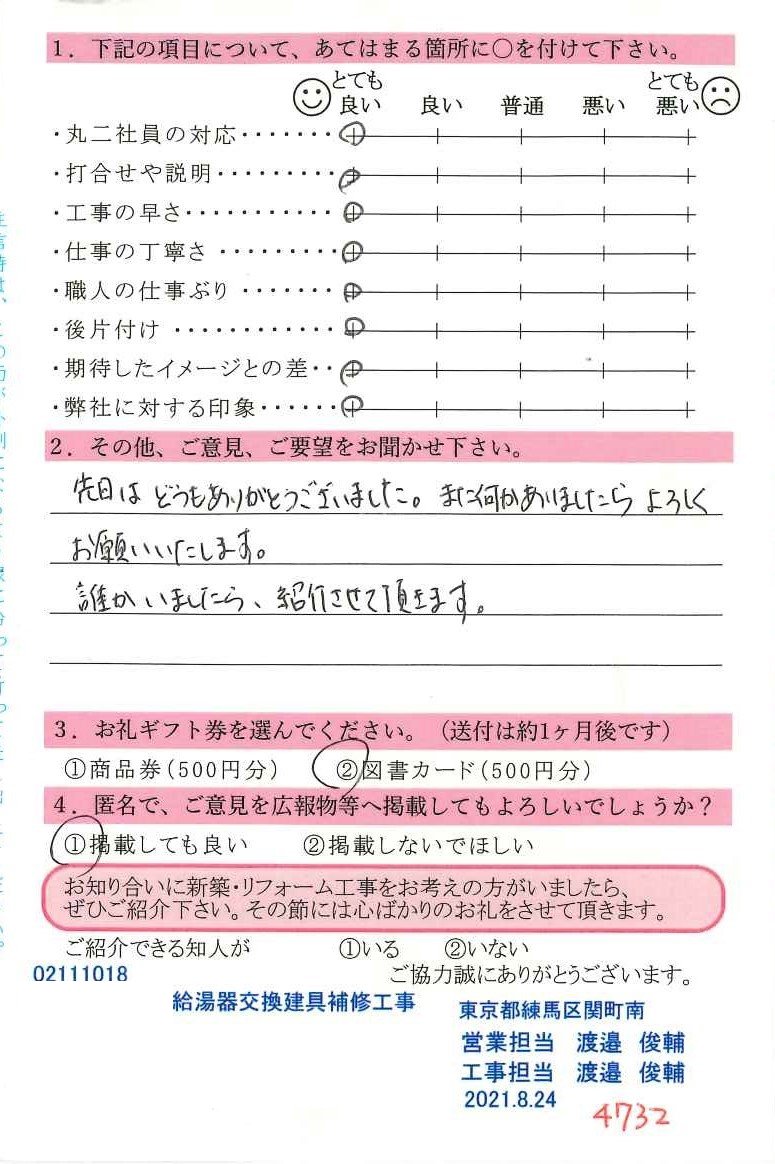 1．下記の項目について、あてはまる箇所に○を付けて下さい。
とても良い 良い 普通 悪い とても悪い
・丸二社員の対応・・・・・・・
・打合せや説明・・・・・・・・・
・工事の早さ・・・・・・・・・・・
・仕事の丁寧さ・・・・・・・・・
・職人の仕事ぶり・・・・・・・
・後片付け・・・・・・・・・・・・
・期待したイメージとの差・・
・弊社に対する印象・・・・・・
2．その他、ご意見、ご要望をお聞かせ下さい。
先日は どうもありがとうございました。また何かありましたら よろしく
お願いいたします。
誰かいましたら、紹介させて頂きます。
3．お礼ギフト券を選んでください。（送付は約1ヶ月後です）
①商品券（500円分） ②図書カード（500円分）
4．匿名で、ご意見を広報物等へ掲載してもよろしいでしょうか？
①掲載しても良い ②掲載しないでほしい
お知り合いに新築・リフォーム工事をお考えの方がいましたら、
ぜひご紹介下さい。その節には心ばかりのお礼をさせて頂きます。
ご紹介できる知人が ①いる ②いない
02111018 ご協力誠にありがとうございます。
給湯器交換建具補修工事 東京都練馬区関町南
営業担当 渡邉 俊輔
工事担当 渡邉 俊輔
2021.8.24
4732